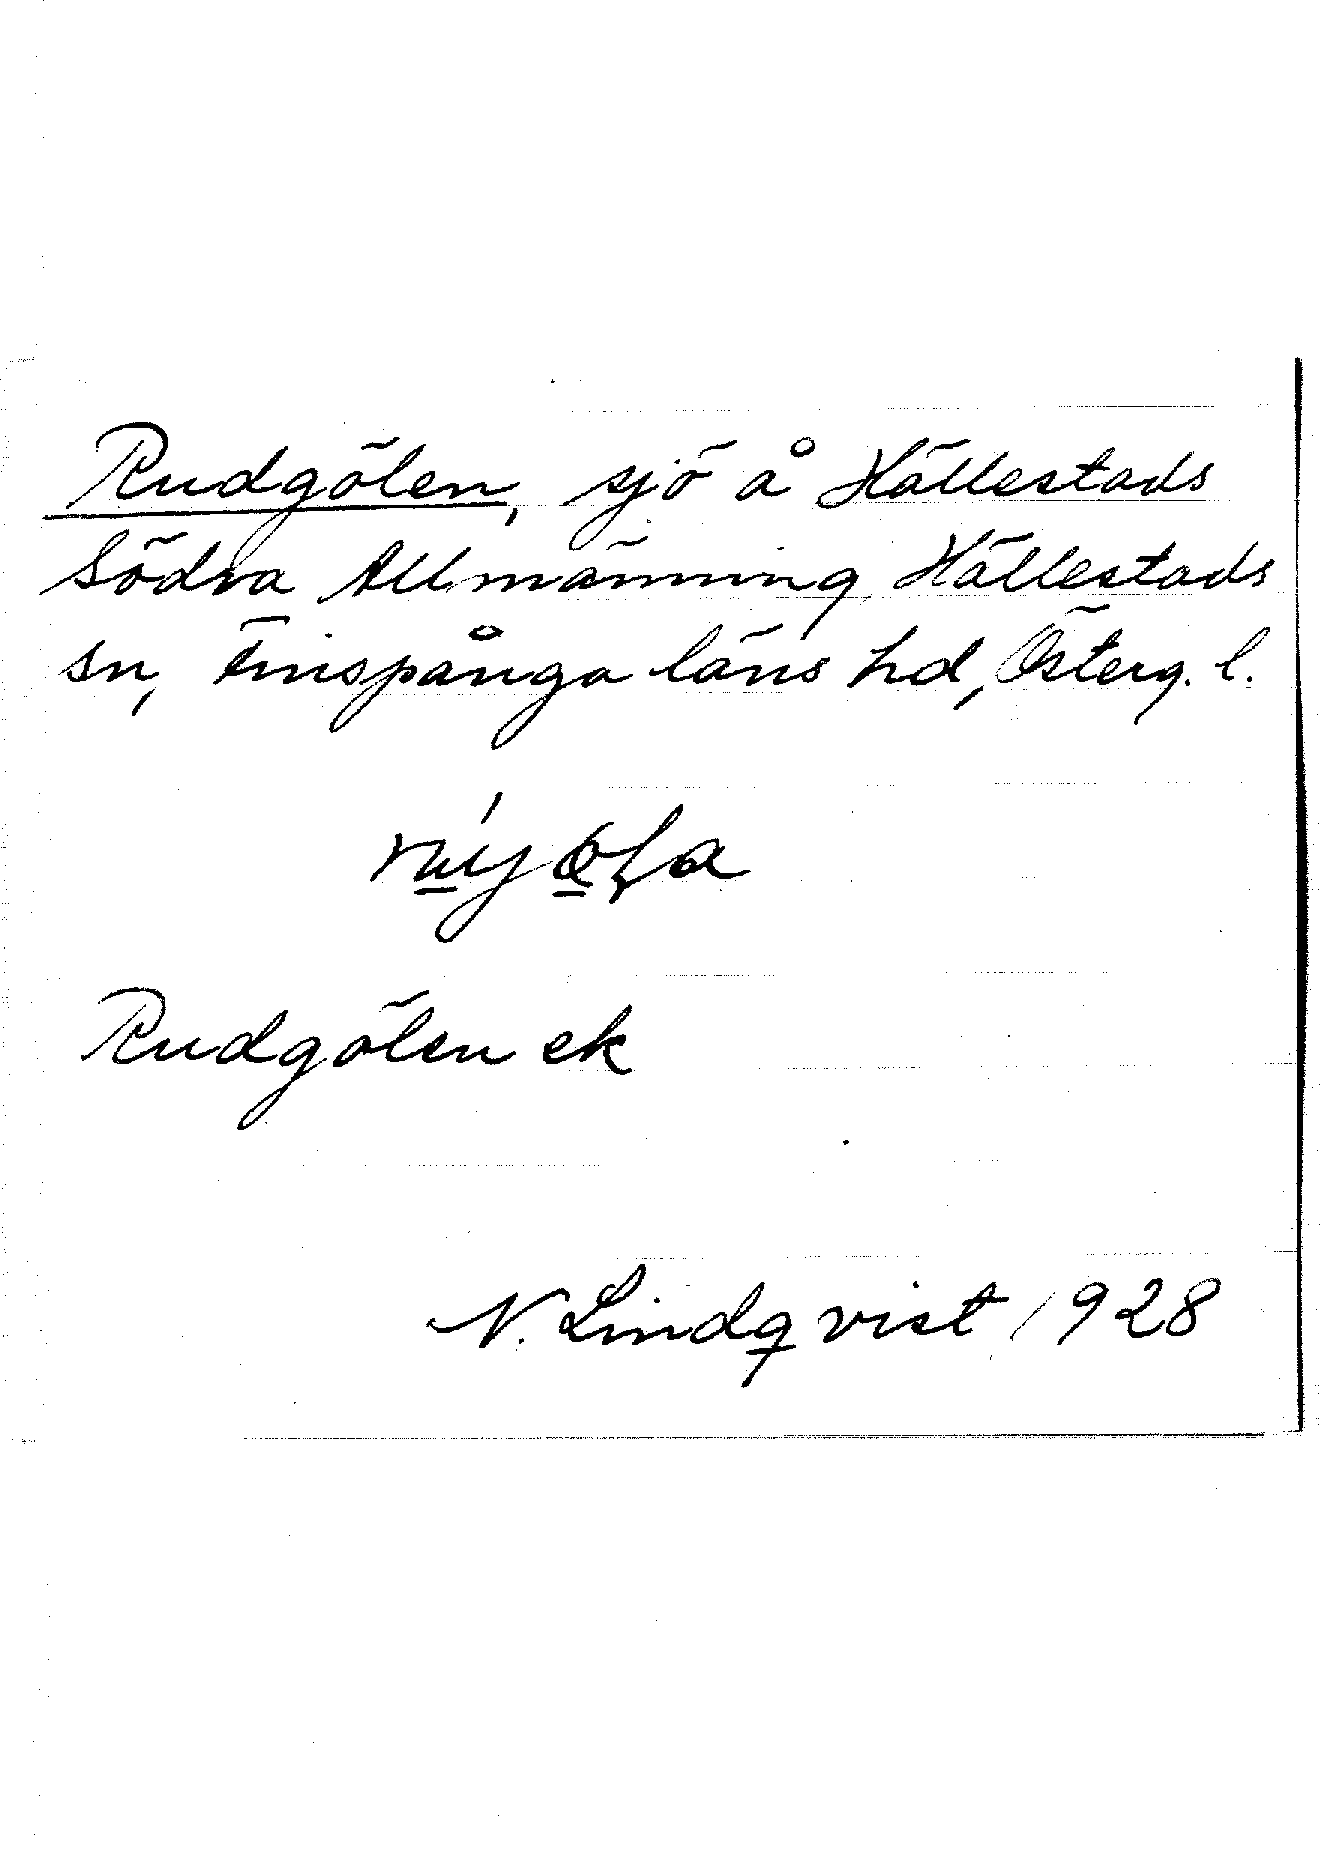 Rudgölen, sjö å Hällestads
Södra Allmänning, Hällestads
sn, Finspånga läns hd, Österg. l.
Rudgölen ek
N. Lindqvist 1928